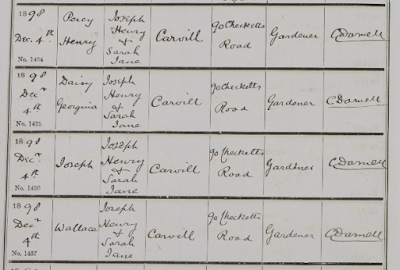 1898 Percy Joseph
Dec. 4th Henry Henry & Sarah Jane Carvill 90 Checketts Road Gardener C Darnell
No. 1434
1898 Daisy Joseph
Decr 4th Georgina Henry & Sarah Jane Carvill 90 Checketts Road Gardener C Darnell
No. 1435
1898 Joseph
Decr 4th Joseph Henry & Sarah Jane Carvill 90 Checketts Road Gardener C Darnell
No. 1436
1898 Joseph
Decr 4th Wallace Henry & Sarah Jane Carvill 90 Checketts Road Gardener C Darnell
No. 1437